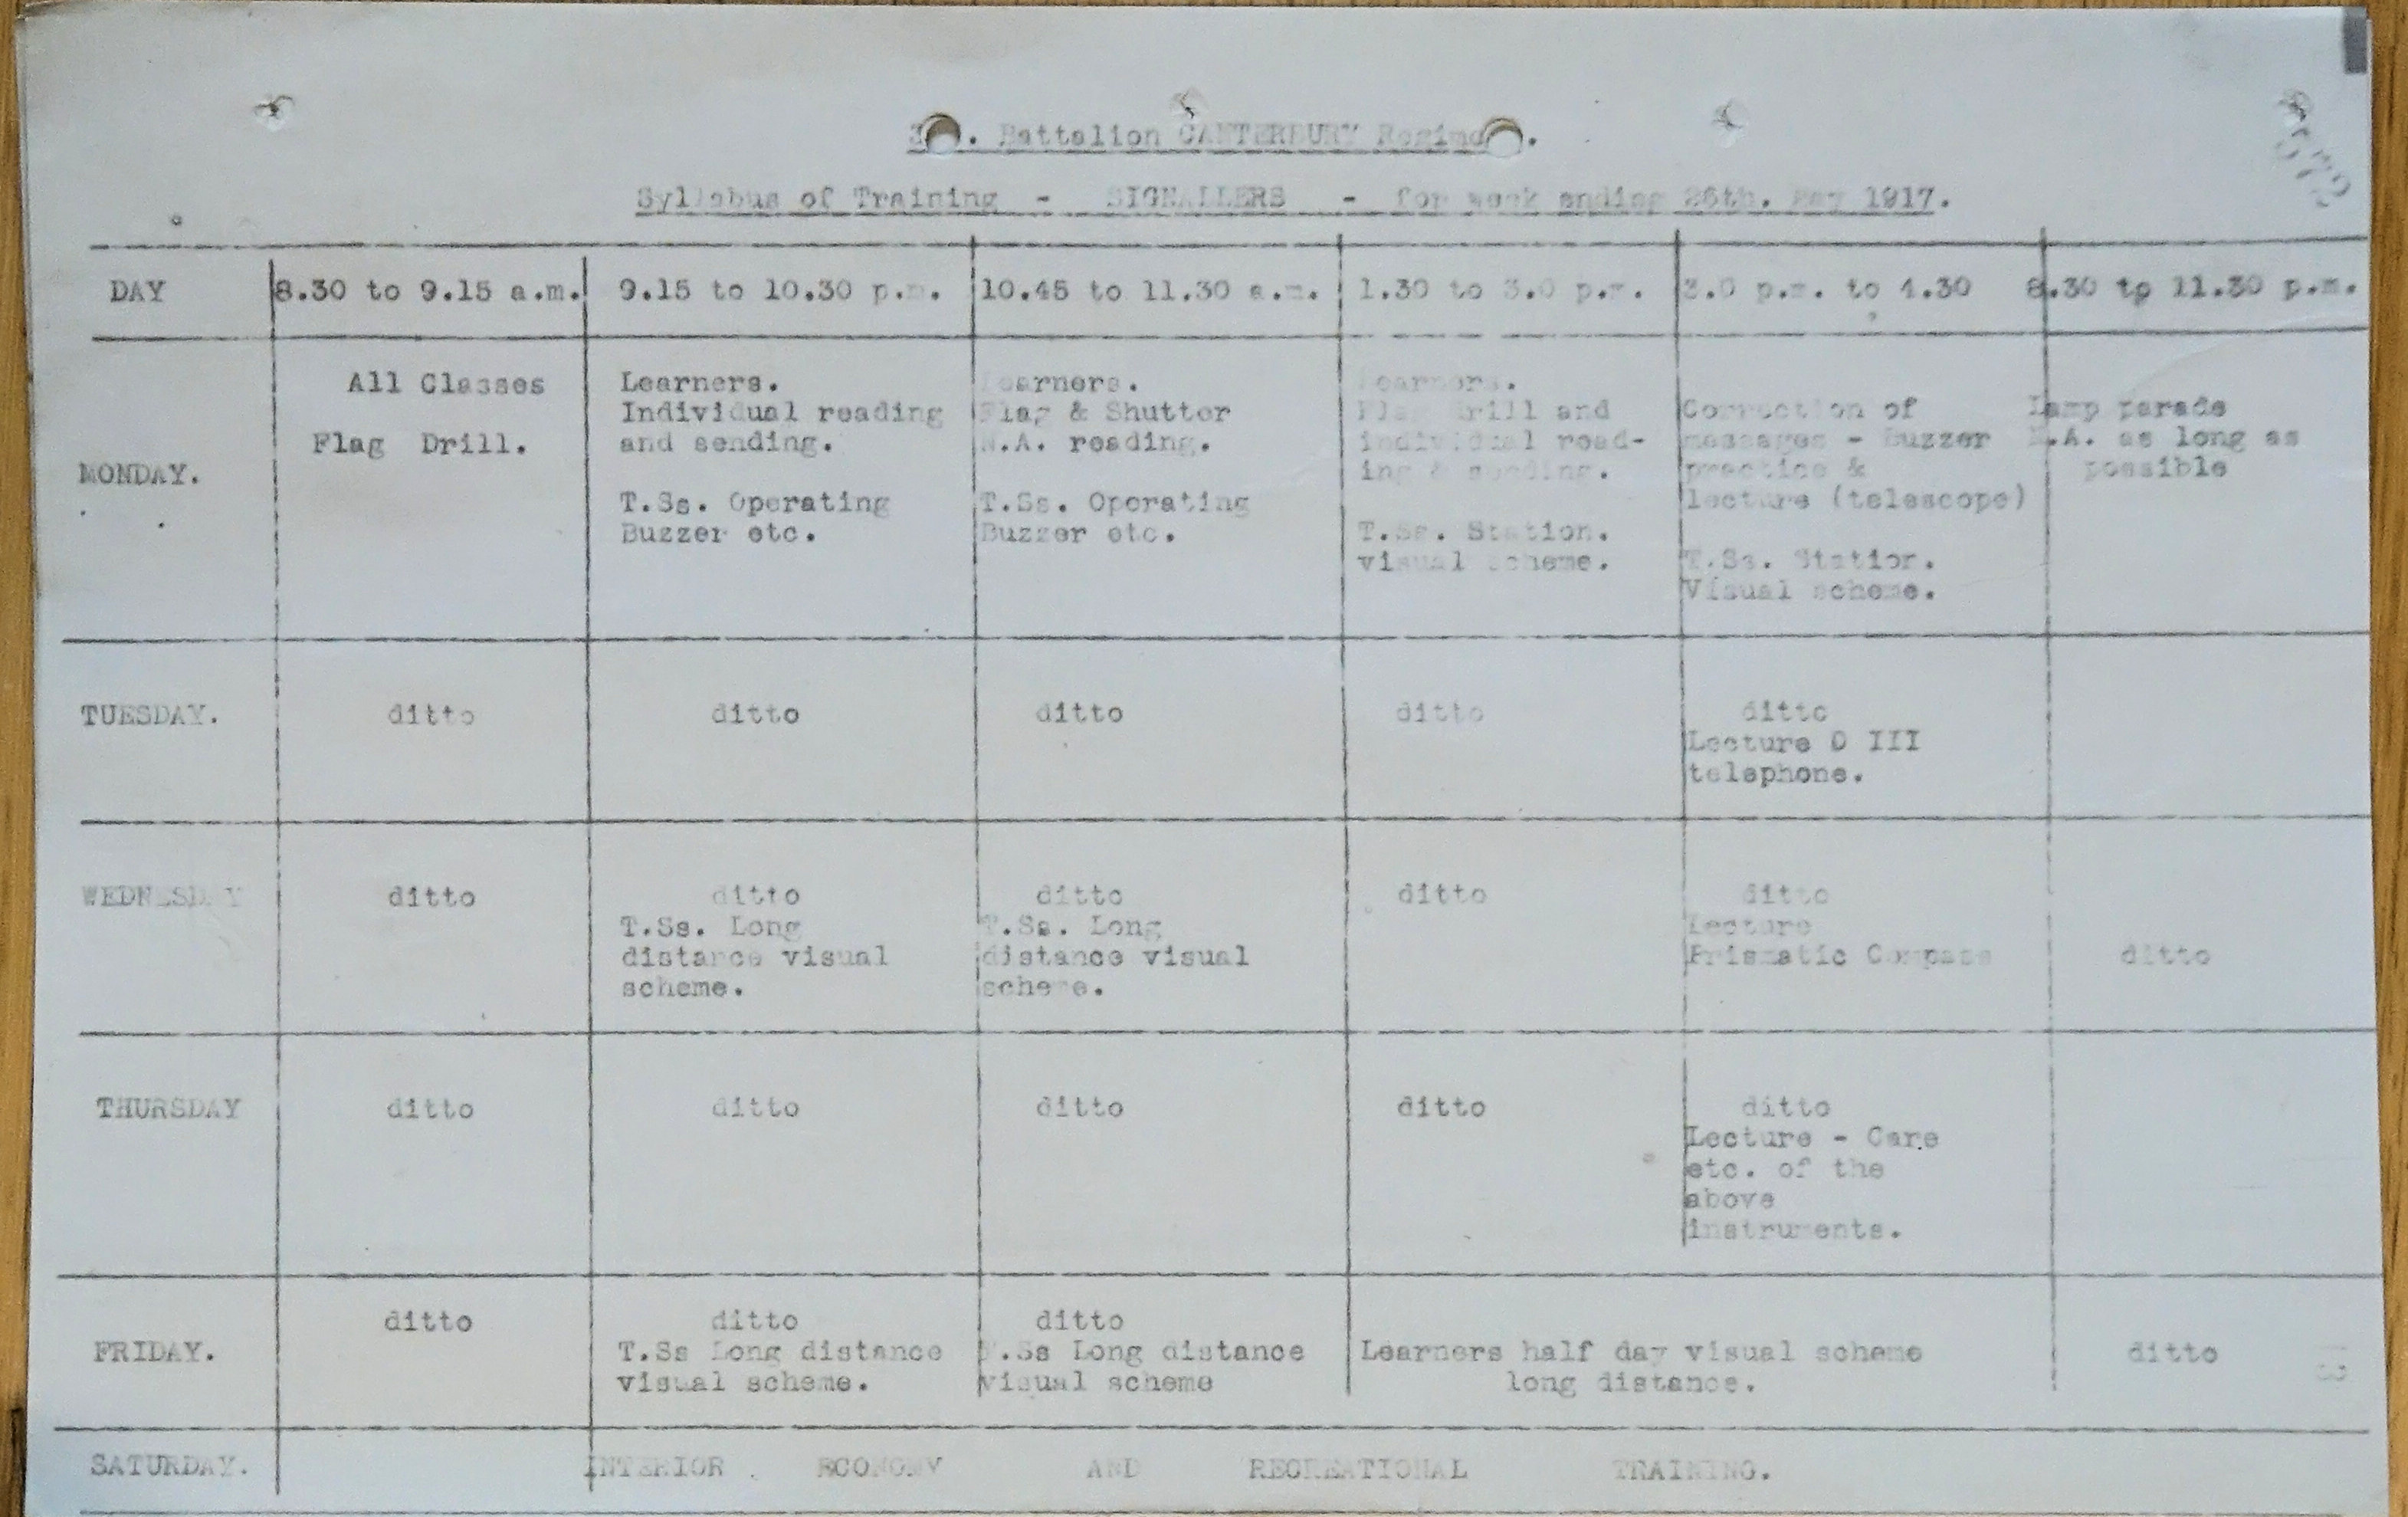 Battalion CANTERBURY
Syllabus of Training - SIGNALLERS - for week ending 26th. May 1917.
DAY 8.30 to 9.15 a.m. 9.15 to 10.30 p.m. 10.45 to 11.30 a.m. 1.30 to 3.0 p.m. 3.0 p.m. to 4.30 8.30 tp 11.30 p.m.
MONDAY.
All Classes
Flag Drill.
Learners.
Individual reading
and sending.
T.Ss. Operating
Buzzer etc.
Learners.
Flag & Shutter
N.A. reading.
T.Ss. Operating
Buzzer etc.
Learners.
Flag Drill and
individual read-
ing & sending.
T.Ss. Station.
visual scheme.
Correction of
messages - Buzzer
practice &
lecture (telescope)
T.Ss. Station.
Visual scheme.
Lamp parade
N.A. as long as
possible
TUESDAY.
ditto
ditto
ditto
ditto
ditto
Lecture D III
telephone.
WEDNESDAY
ditto
ditto
T.Ss. Long
distance visual
scheme.
ditto
T.Ss. Long
distance visual
scheme.
ditto
ditto
Lecture
Prismatic Compass
ditto
THURSDAY
ditto
ditto
ditto
ditto
ditto
Lecture - Care
etc. of the
above
instruments.
FRIDAY.
ditto
ditto
T.Ss Long distance
visual scheme.
ditto
T.Ss Long distance
visual scheme
Learners half day visual scheme
long distance.
ditto
SATURDAY.
INTERIOR ECONOMY AND RECREATIONAL TRAINING.